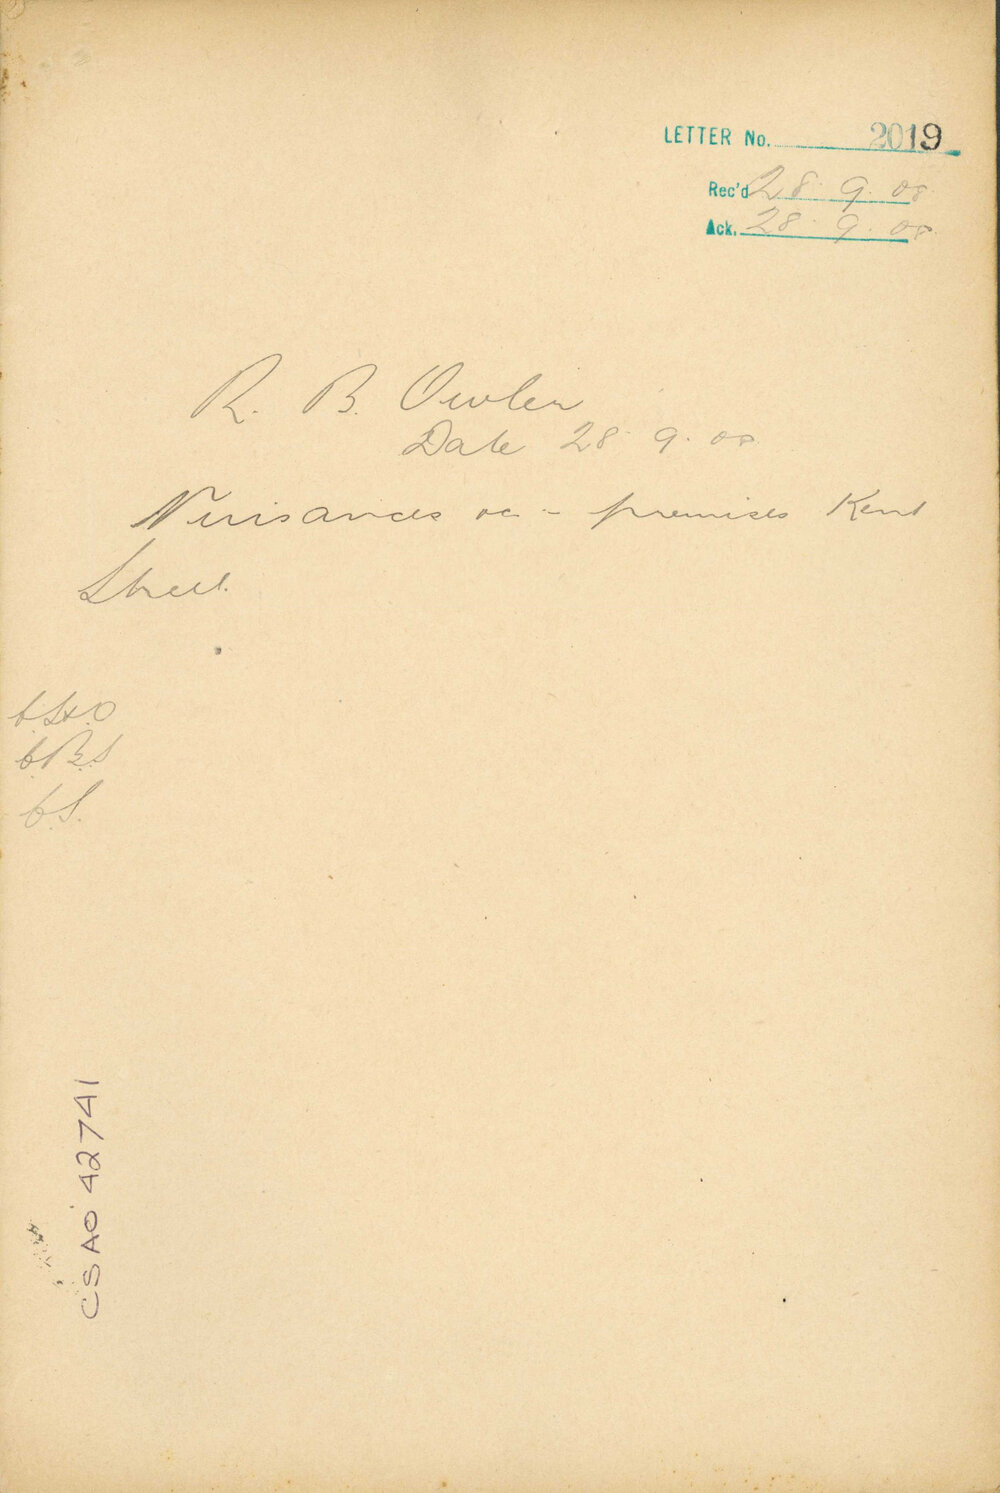 LETTER No. 2019
Rec'd 28. 9. 08
Ack. 28. 9. 08.
R. B. Owler
Date 28. 9. 08
Nuisances &c - premises Kent
Street.
C.H.O
C.B.S
C.S.
CSAO 42741